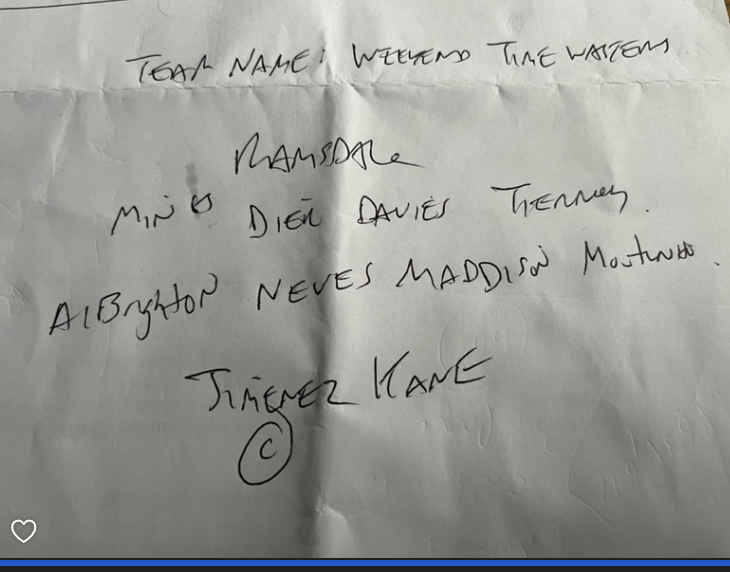 TEAM NAME: WEEKEND TIME WASTERS
RAMSDALE
MINGS DIER DAVIES TIERNEY.
AlBrighton NEVES MADDISON Moutinho.
JIMENEZ KANE
C